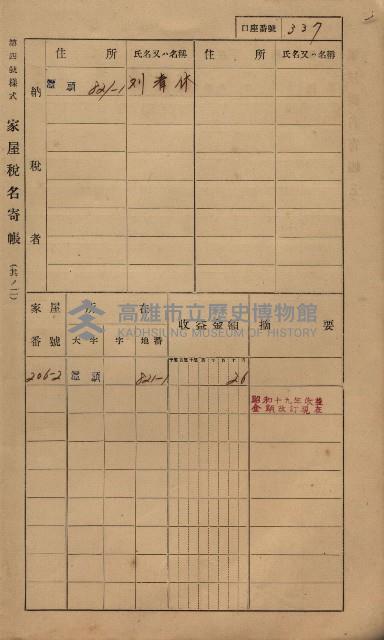 口座番號 337
第四號樣式 家屋稅名寄帳 (其ノ二)
納稅者
住所 氏名又ハ名稱 住所 氏名又ハ名稱
821-1 刘
家屋番號 所在 大字 字 地番 收益金額 摘要
206-2 821-1 26
昭和十九年收益
金額改訂現在
高雄市立歷史博物館
KAOHSIUNG MUSEUM OF HISTORY